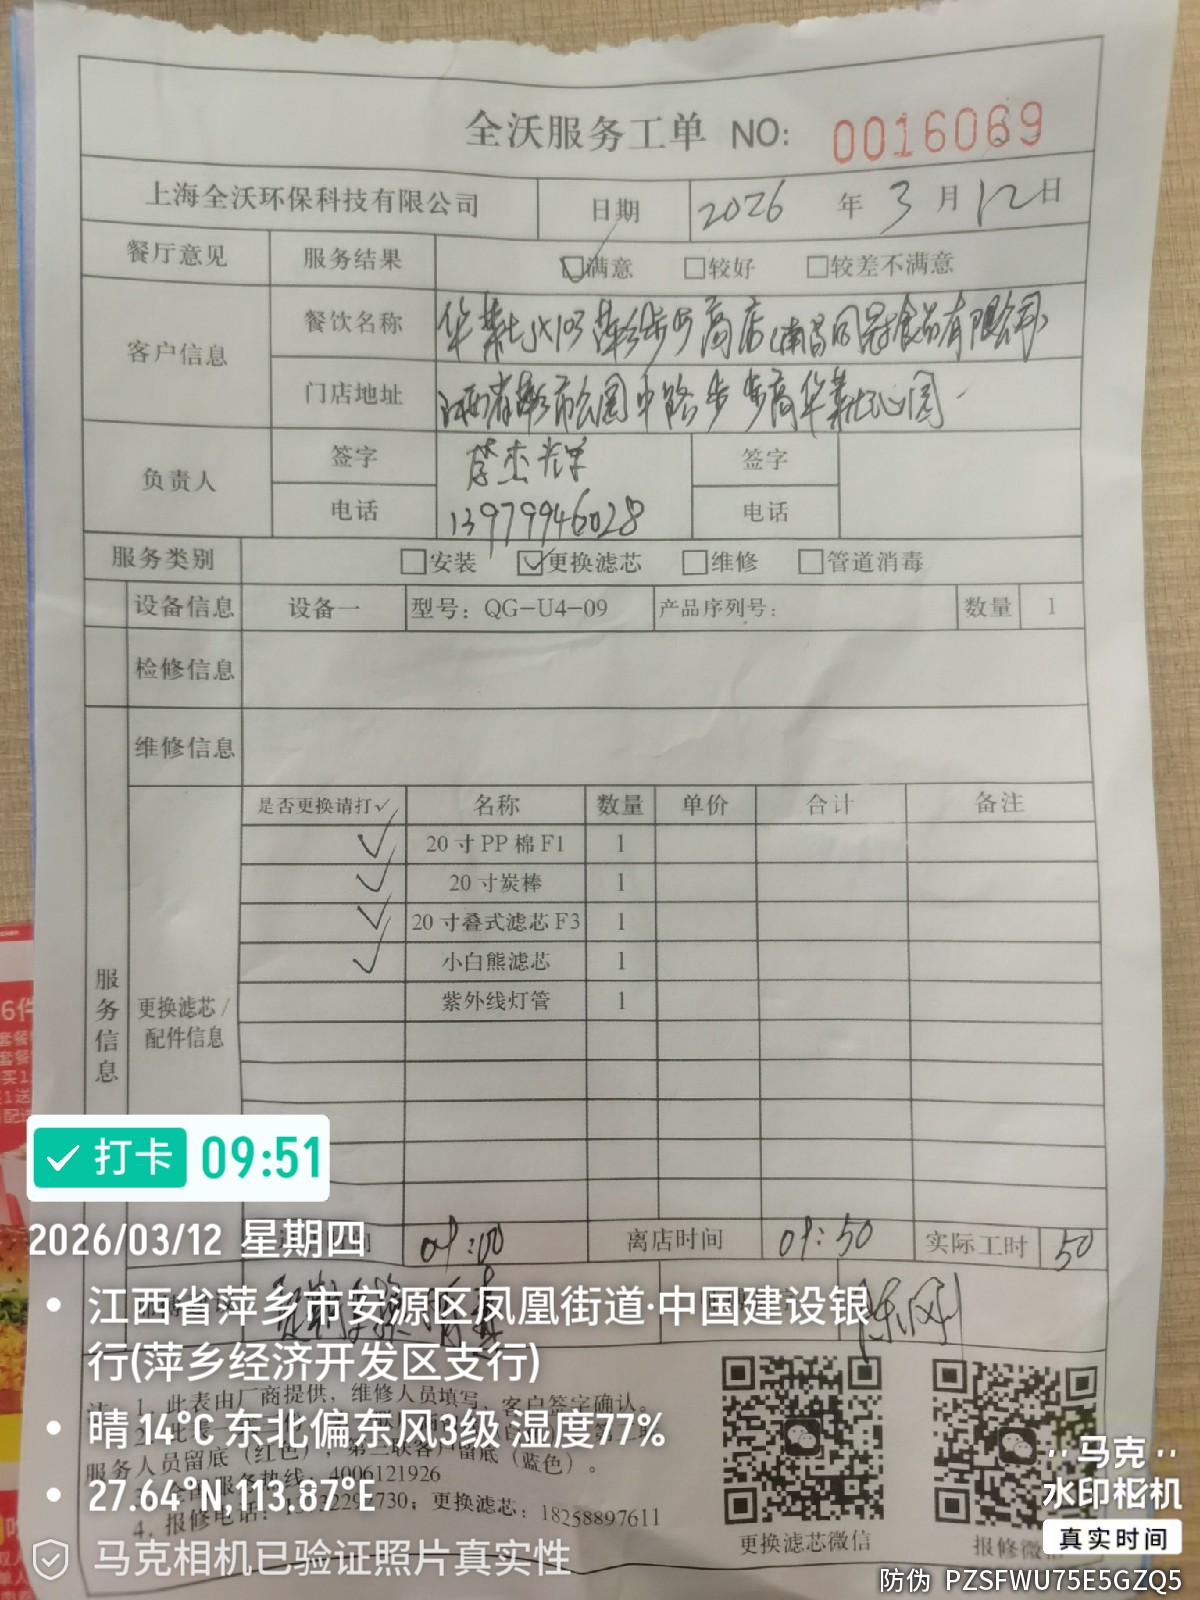 全沃服务工单 NO: 0016069
上海全沃环保科技有限公司 日期 2026 年 3 月 12 日
餐厅意见 服务结果 ☑满意 □较好 □较差不满意
客户信息 餐饮名称 华莱士 萍乡步步高店(南昌 食品有限公司)
门店地址 江西省萍乡市公园中路步步高华莱士
负责人 签字 杰 签字
电话 13979946028 电话
服务类别 □安装 ☑更换滤芯 □维修 □管道消毒
设备信息 设备一 型号: QG-U4-09 产品序列号: 数量 1
检修信息
维修信息
是否更换请打✓ 名称 数量 单价 合计 备注
✓ 20寸PP棉F1 1
✓ 20寸炭棒 1
✓ 20寸叠式滤芯F3 1
✓ 小白熊滤芯 1
紫外线灯管 1
服务信息
更换滤芯/
配件信息
09:00 离店时间 09:50 实际工时 50
注: 1、此表由厂商提供, 维修人员填写, 客户签字确认。
服务人员留底(红色), 第三联客户留底(蓝色)。
服务热线: 4006121926
4、报修电话: 更换滤芯: 18258897611
更换滤芯微信
报修微信
打卡 09:51
2026/03/12 星期四
江西省萍乡市安源区凤凰街道·中国建设银
行(萍乡经济开发区支行)
晴 14°C 东北偏东风3级 湿度77%
27.64°N,113.87°E
马克相机已验证照片真实性
马克
水印相机
真实时间
防伪 PZSFWU75E5GZQ5